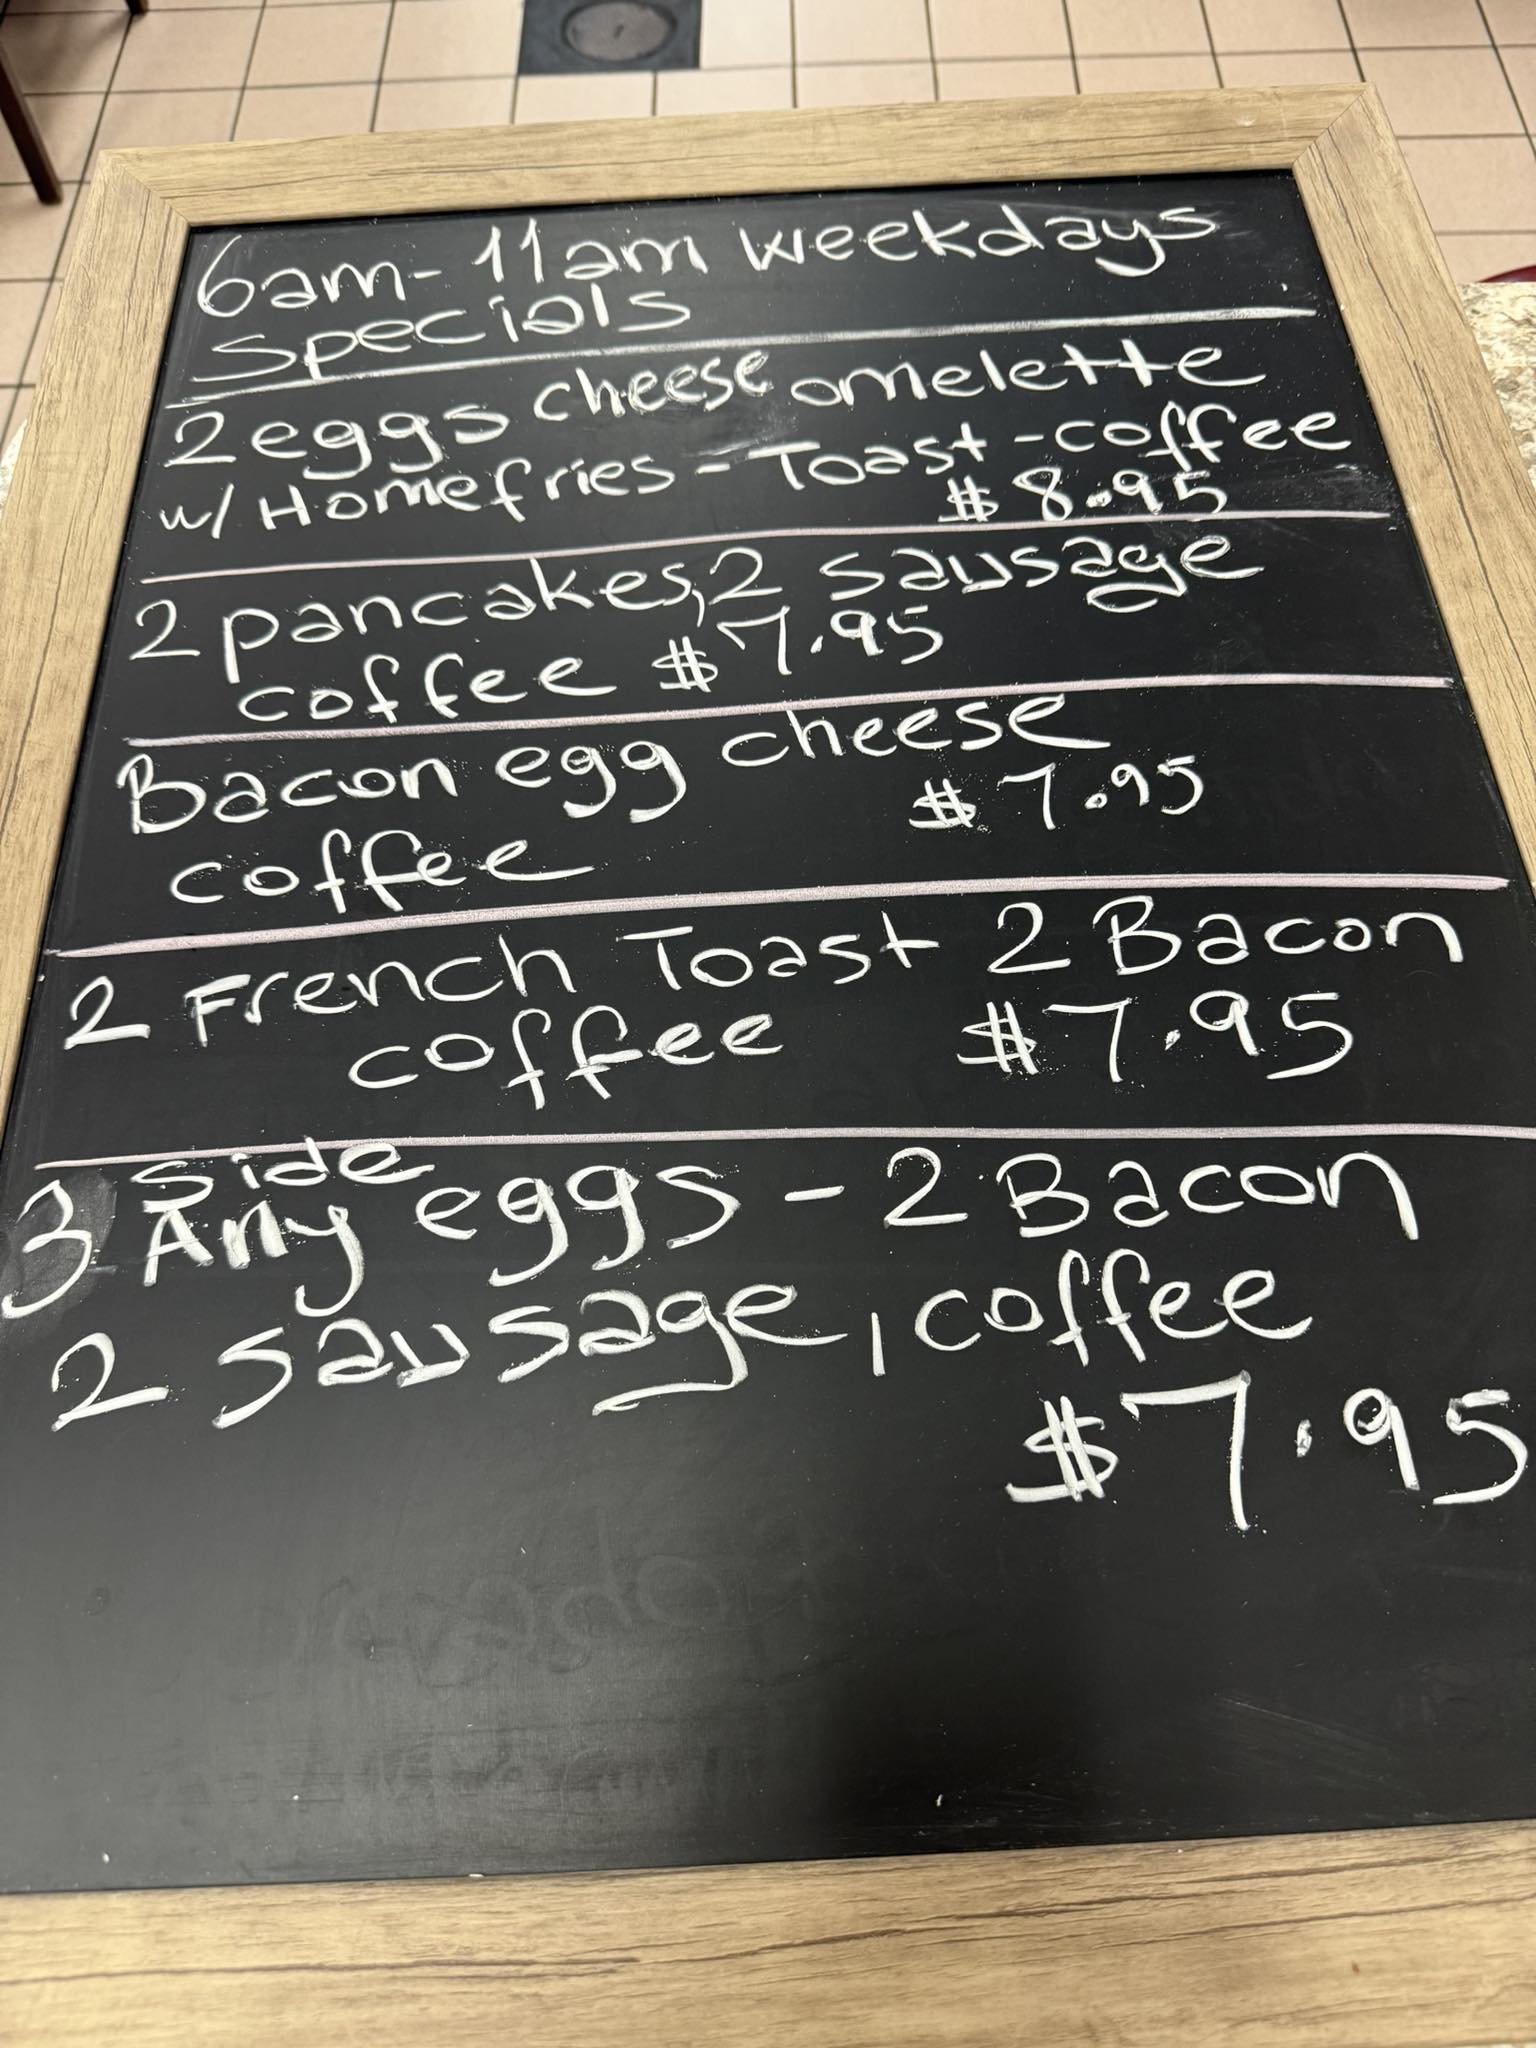 6am-11am weekdays
specials
2 eggs cheese omelette
w/ Homefries - Toast - coffee
$8.95
2 pancakes, 2 sausage
coffee $7.95
Bacon egg cheese
coffee $7.95
2 French Toast 2 Bacon
coffee $7.95
side
3 Any eggs - 2 Bacon
2 sausage, coffee
$7.95